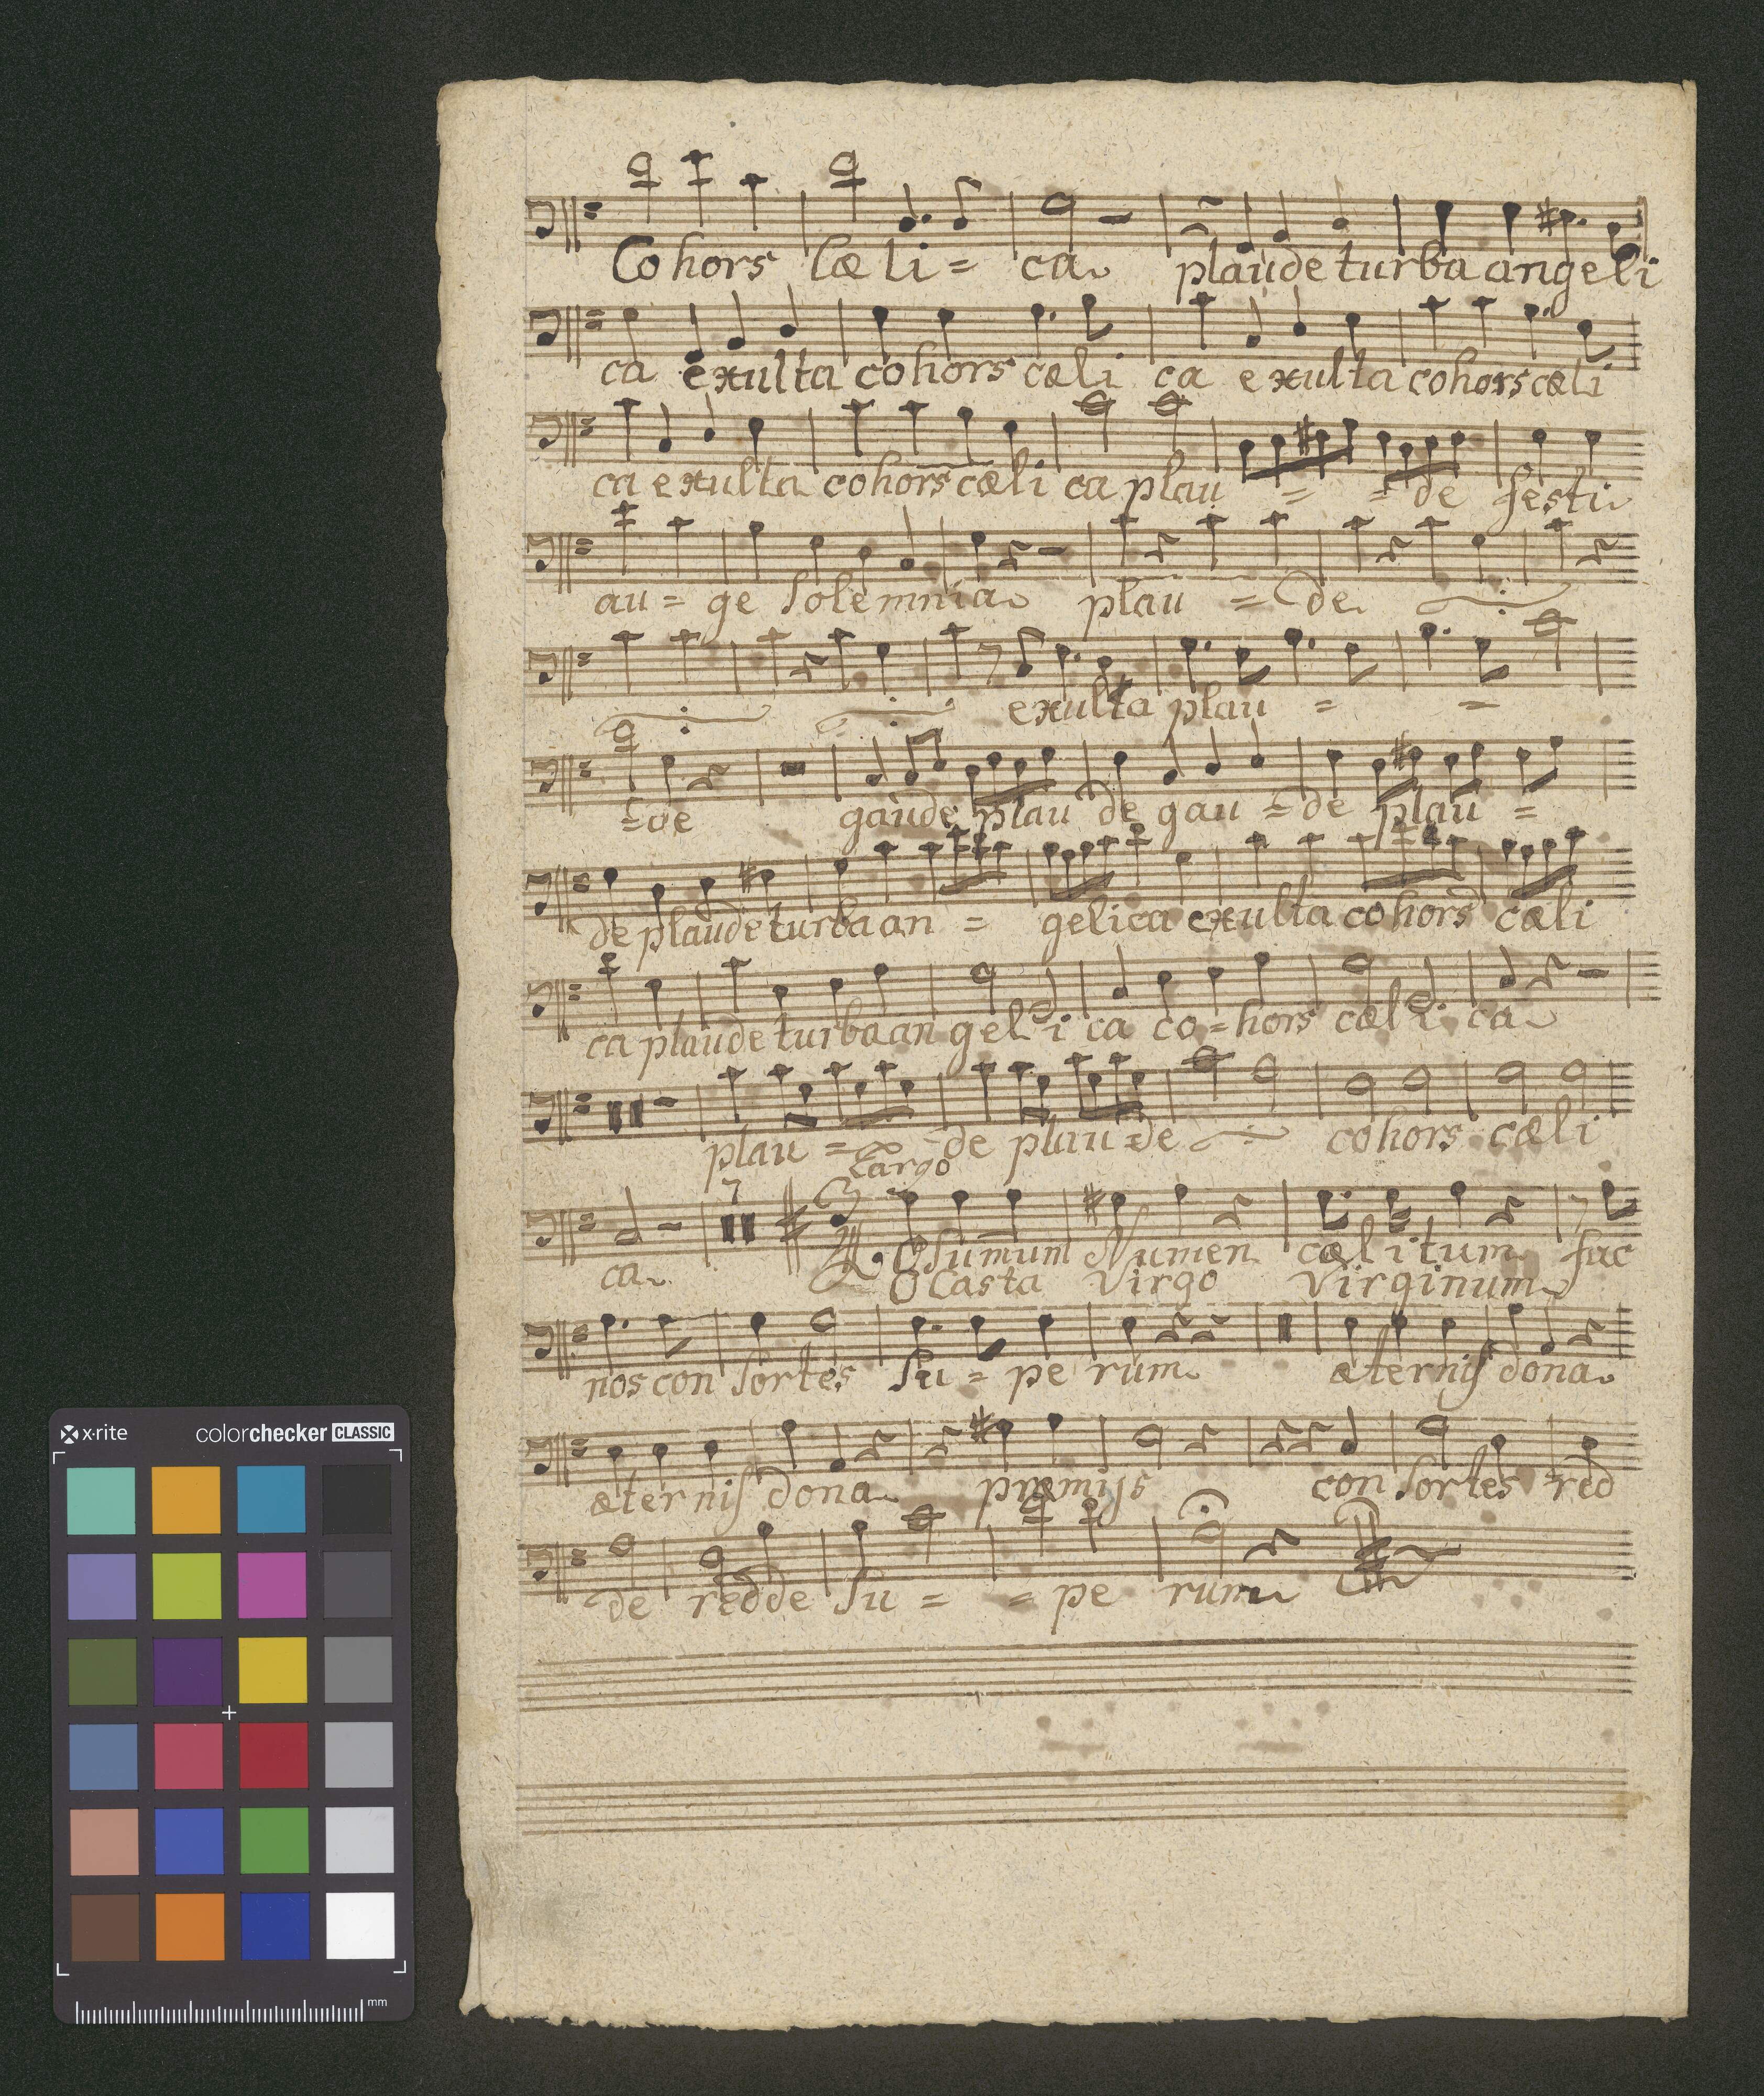 Cohors Cæli = ca plaude turba angeli
ca exulta cohors cæli ca exulta cohors cæli
ca exulta cohors cæli ca plau = = de festi
au = ge solemnia plau = de
exulta plau = =
= de gaude plau de gau = de plau =
de plaude turba an = gelica exulta cohors cæli
ca plaude turba an gel i ca co = hors cæli ca
plau = = de plau = de cohors cæli
Largo
7
3
ca O sum̄um Numen cælitum fac
O Casta Virgo Virginum
nos con sortes su = pe rum æternis dona
æternis dona præmijs con sortes red
de redde su = = pe rum
x·rite colorchecker CLASSIC
mm